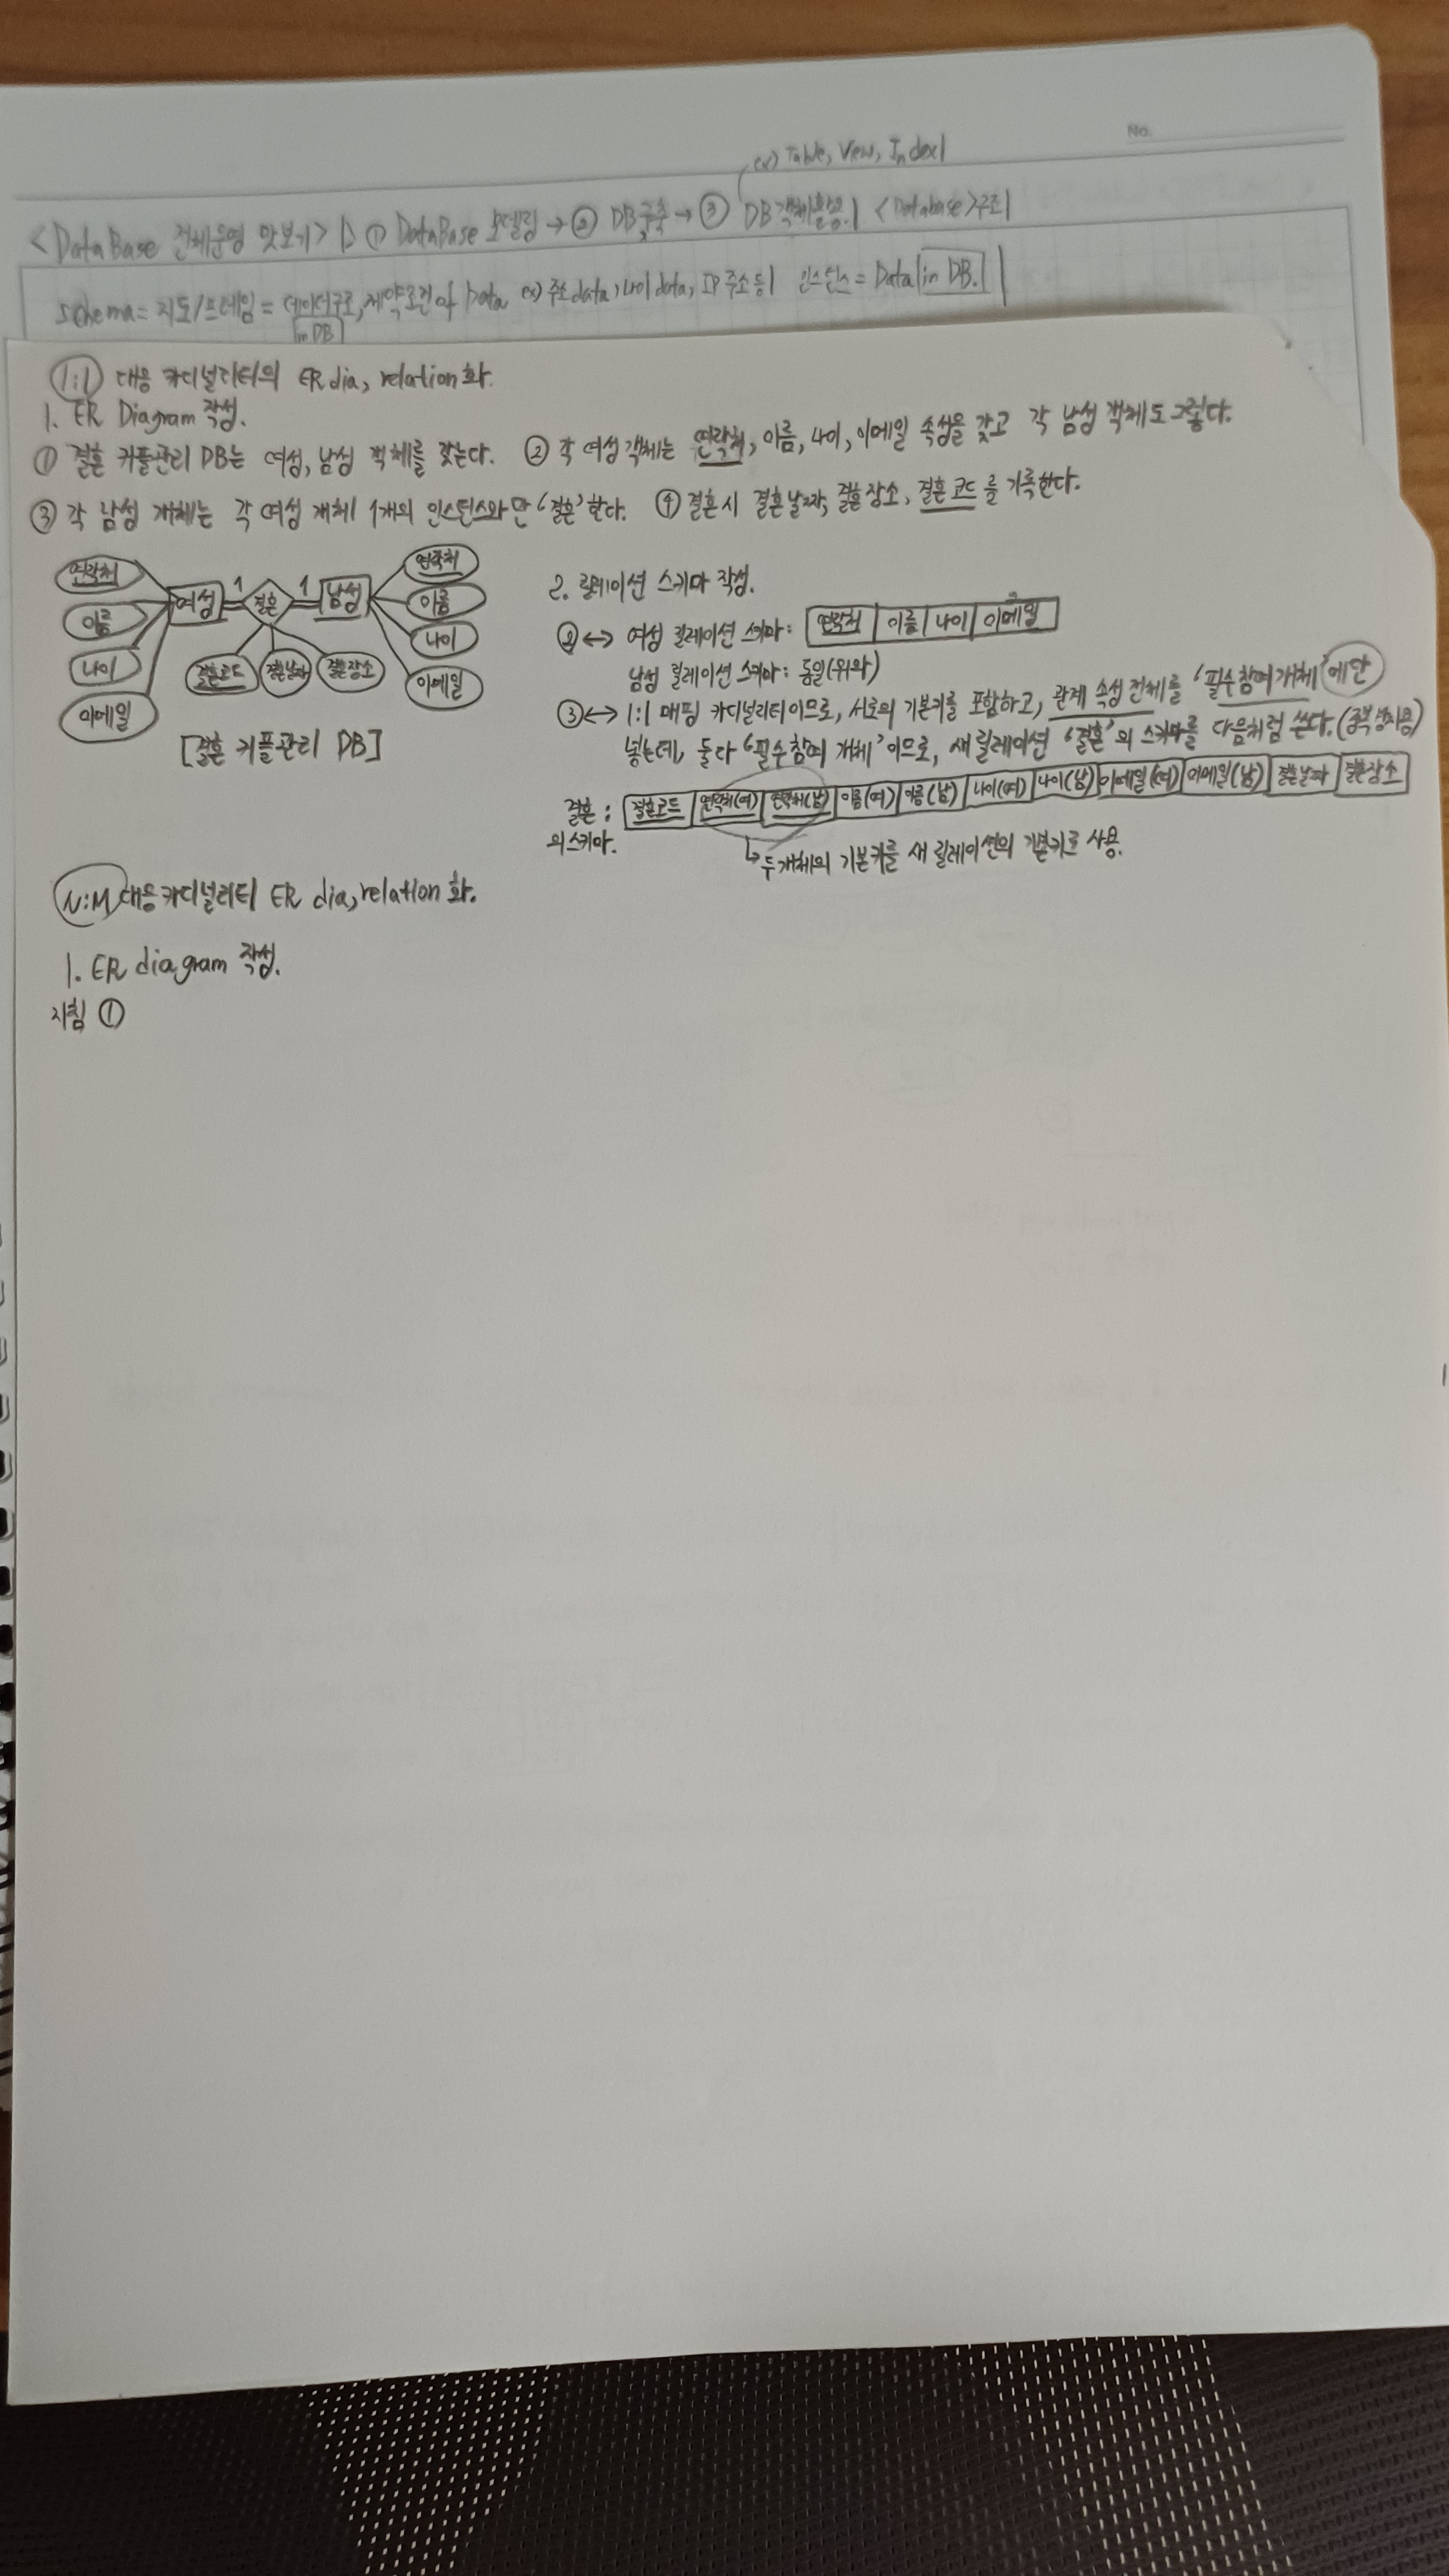 No.
ex) Table, View, Index|
<DataBase 전체운영 맛보기> ▷ ① DataBase 모델링 → ② DB구축 → ③ DB 객체활용.| <Database>구조|
schema = 지도/프레임 = 데이터구조, 제약조건 of Data ex) 주소data, 나이data, IP주소 등| 인스턴스 = Data in DB.|
in DB
1:1 대응 카디널리티의 ER dia, relation화.
1. ER Diagram 작성.
① 결혼 커플관리 DB는 여성, 남성 객체를 갖는다. ② 각 여성 객체는 연락처, 이름, 나이, 이메일 속성을 갖고 각 남성 객체도 그렇다.
③ 각 남성 개체는 각 여성 개체 1개의 인스턴스와만 '결혼'한다. ④ 결혼시 결혼날짜, 결혼장소, 결혼코드를 기록한다.
연락처
이름
나이
이메일
여성 1 결혼 1 남성
연락처
이름
나이
이메일
결혼코드 결혼날짜 결혼장소
[결혼 커플관리 DB]
2. 릴레이션 스키마 작성.
②↔ 여성 릴레이션 스키마: 연락처 이름 나이 이메일
남성 릴레이션 스키마: 동일(위와)
③↔ 1:1 매핑 카디널리티이므로, 서로의 기본키를 포함하고, 관계 속성 전체를 '필수참여개체'에만
넣는데, 둘다 '필수참여 개체'이므로, 새 릴레이션 '결혼'의 스키마를 다음처럼 쓴다.
결혼: 결혼코드 연락처(여) 연락처(남) 이름(여) 이름(남) 나이(여) 나이(남) 이메일(여) 이메일(남) 결혼날짜 결혼장소
의 스키마.
↳두 개체의 기본키를 새 릴레이션의 기본키로 사용.
N:M 대응 카디널리티 ER dia, relation화.
1. ER diagram 작성.
지침 ①